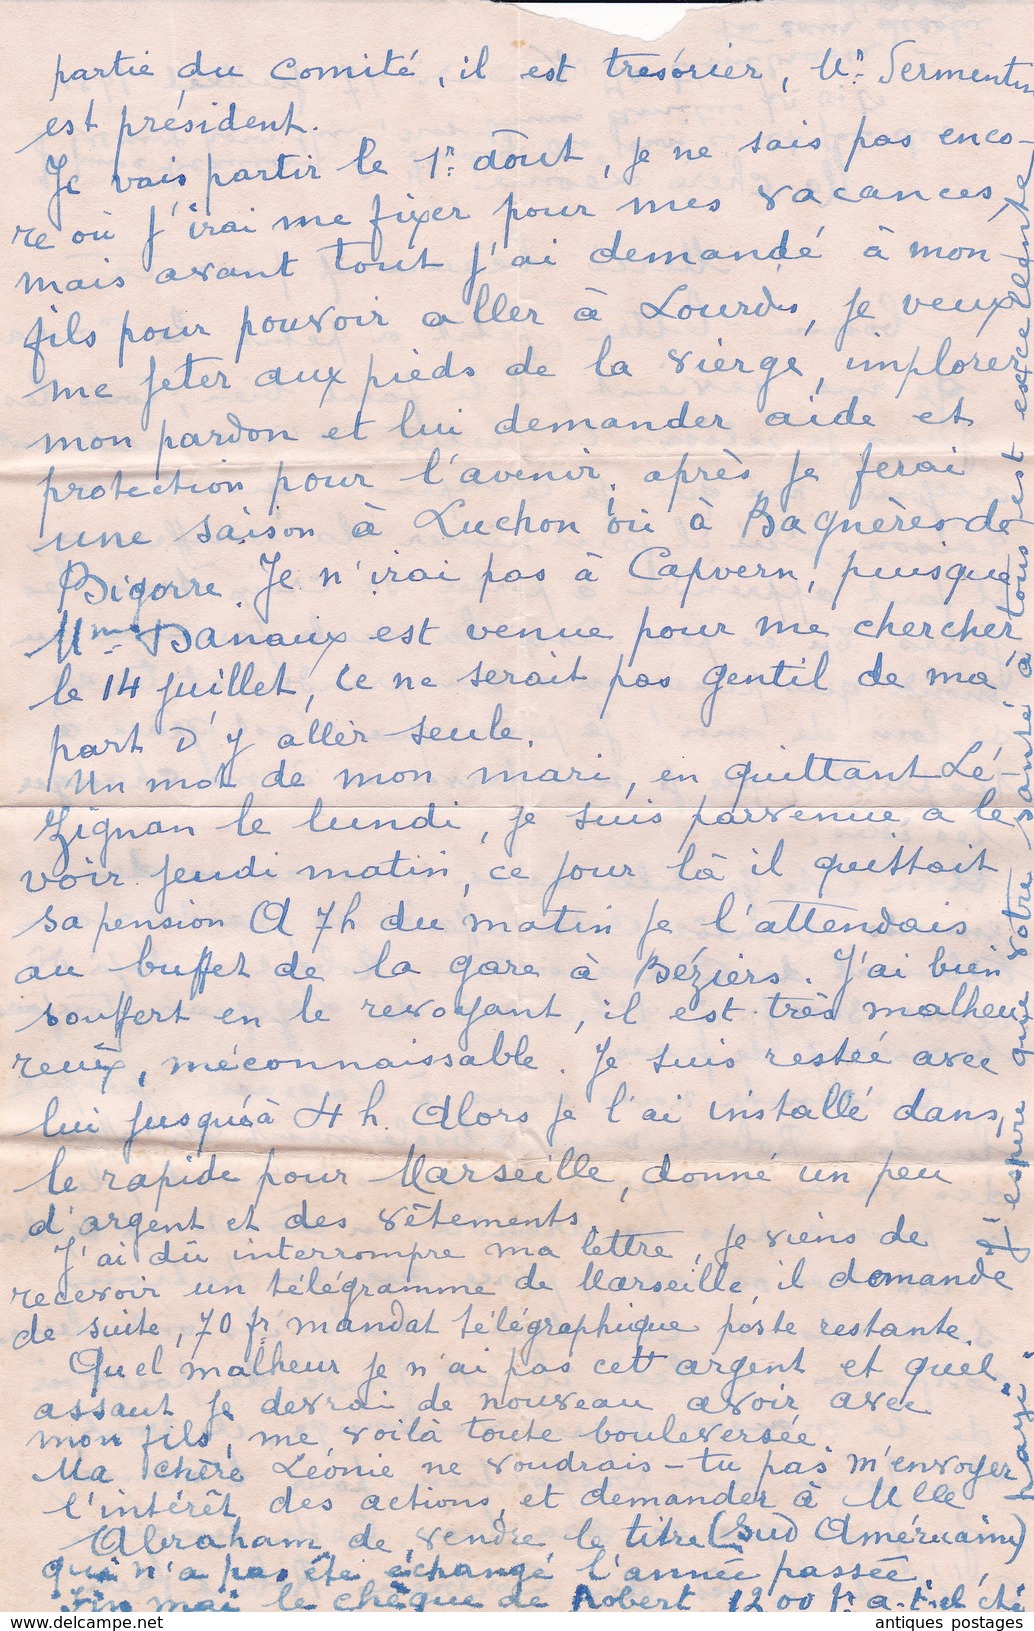 partie du comité, il est tresorier, Mr. Sermentin
est président.
Je vais partir le 1r. Août, je ne sais pas enco-
re où j'irai me fixer pour mes vacances
mais avant tout j'ai demandé à mon
fils pour pouvoir aller à Lourdes, je veux
me jeter aux pieds de la vierge, implorer
mon pardon et lui demander aide et
protection pour l'avenir, après je ferai
une saison à Luchon où à Bagnères de
Bigorre. Je n'irai pas à Capvern, puisque
Mme Danaux est venue pour me chercher
le 14 juillet, ce ne serait pas gentil de ma
part d'y aller seule.
Un mot de mon mari, en quittant Lé-
zignan le lundi, je suis parvenue a le
voir jeudi matin, ce jour là il quittait
sa pension A 7h du matin je l'attendais
au buffet de la gare à Béziers. J'ai bien
souffert en le revoyant, il est très malheu
reux, méconnaissable. Je suis restée avec
lui jusqu'à 4 h. Alors je l'ai installé dans,
le rapide pour Marseille, donné un peu
d'argent et des vêtements.
J'ai dû interrompre ma lettre, je viens de
recevoir un télégramme de Marseille, il demande
de suite, 70 fr, mandat télégraphique poste restante.
Quel malheur je n'ai pas cett argent et quel
assaut je devrai de nouveau avoir avec
mon fils, me voilà toute bouleversée.
Ma chère Léonie ne voudrais-tu pas m'envoyer
l'intérêt des actions, et demander à Mlle
Abraham de vendre le titre (Sud Américaine)
qui n'a pas été échangé l'année passée.
Fin mai le chèque de Robert 1200 fr a-t-il été
payé?
J'espère que votre santé à tous est excellente
antiques postages